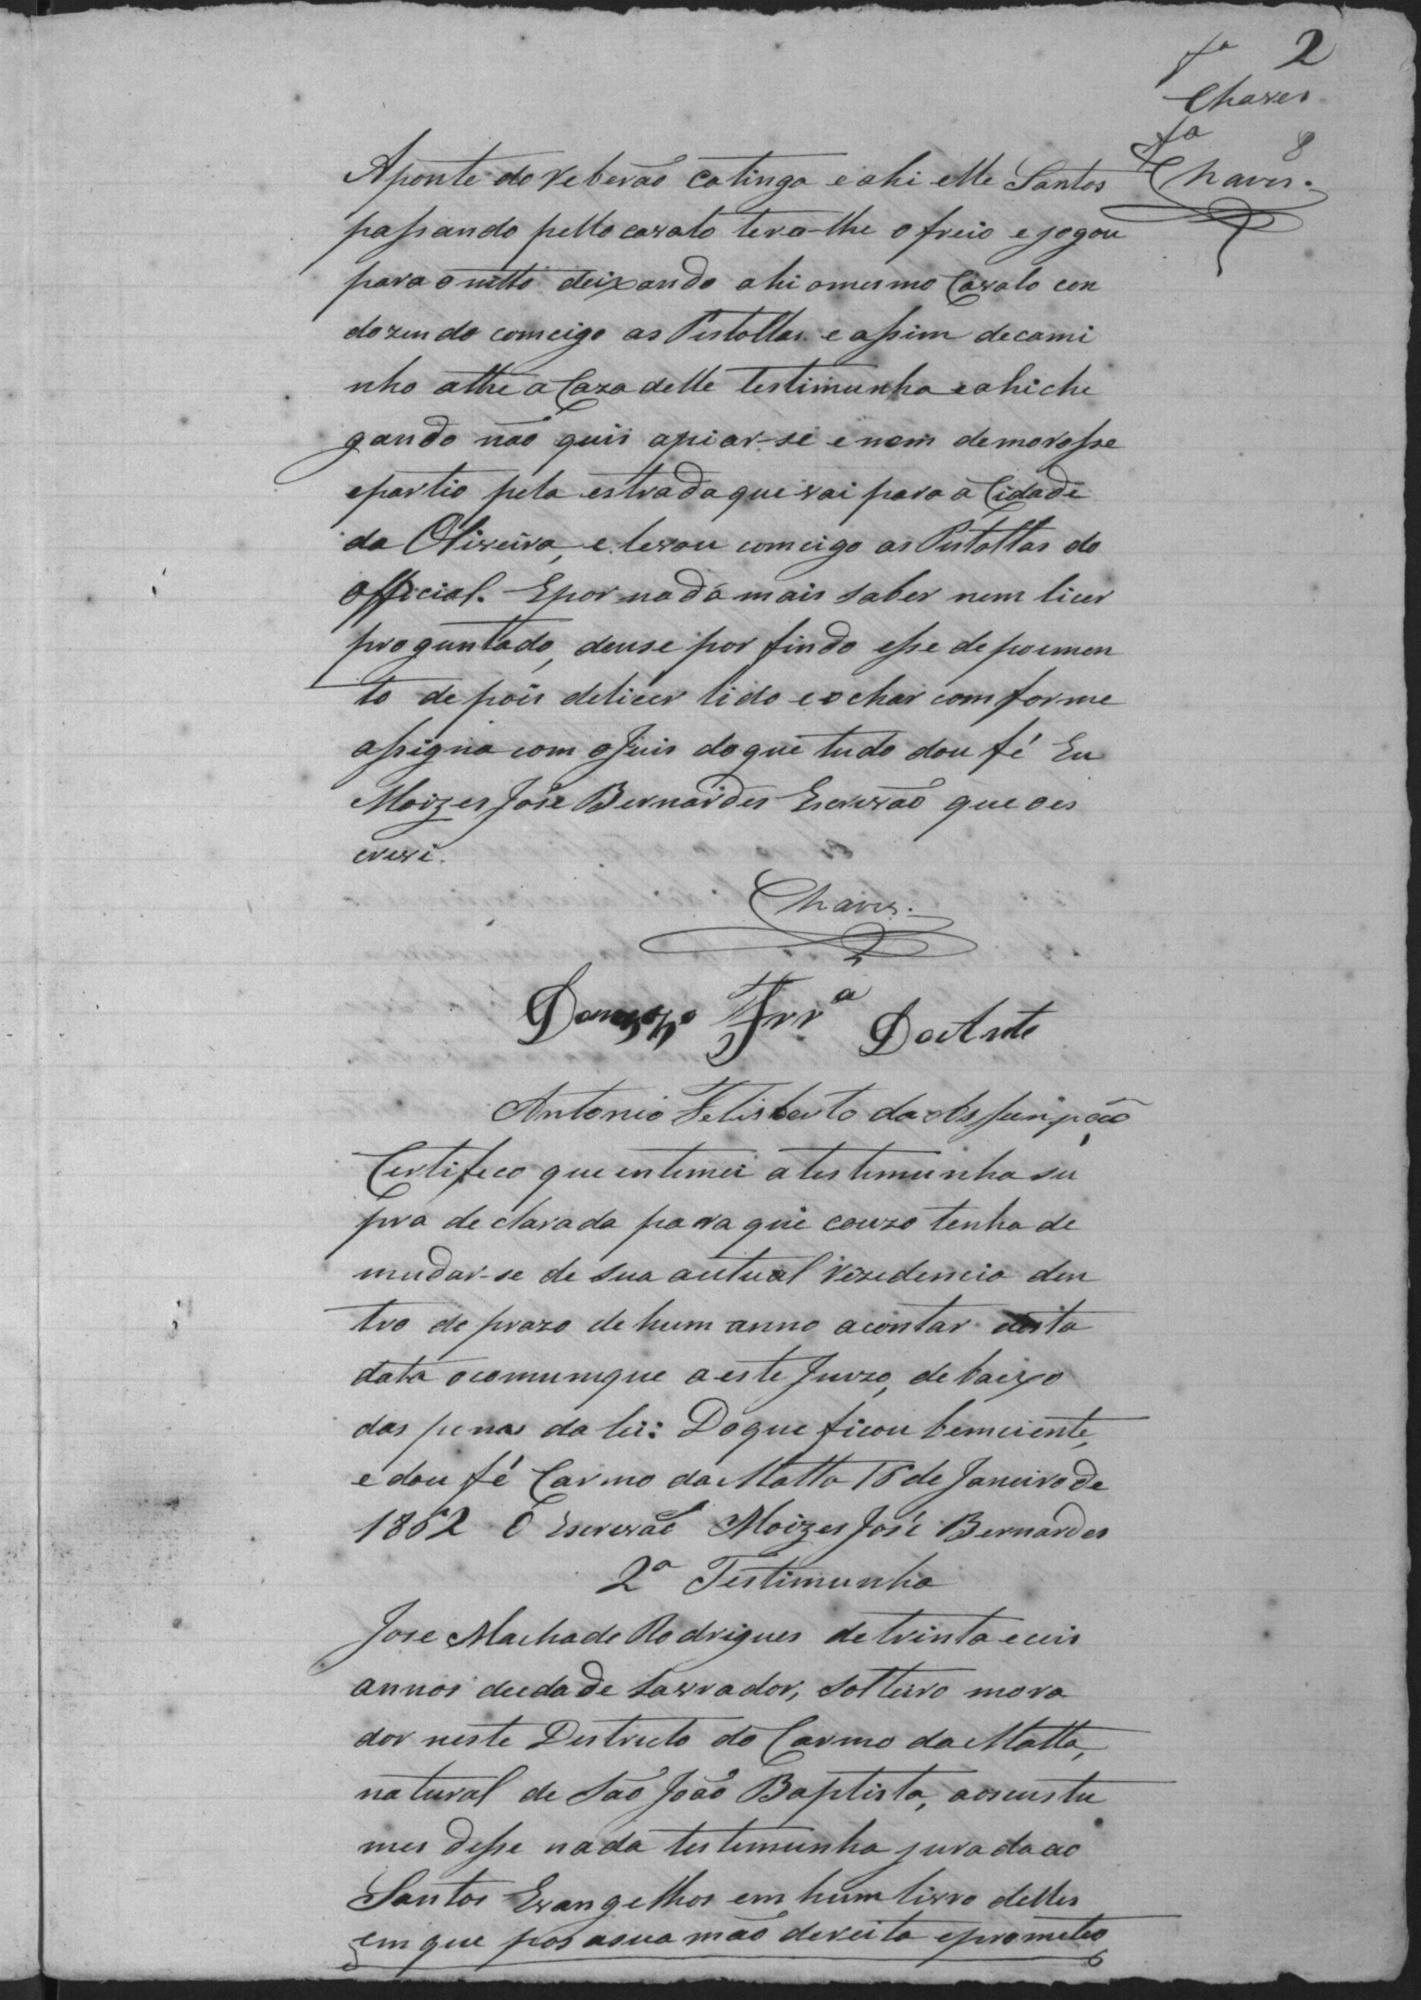 2
fª
Chaves
fª 8
Chaves.
Aponte do Reberão Catinga e ahi elle Santos
passando pello cavalo tero-lhe o freio e jogou
para o matto deixando ahi o mesmo Cavalo con
dozendo comcigo as Pistollas e assim decami
nho athe a Caza delle testimunha e ahi che
gando não quis apiar-se e nem demorasse
epartio pela estrada que vai para a Cidade
da Oliveira, e levou comcigo as Pistollas do
official. Epor nada mais saber nem licer
proguntado, deuse por findo esse depoimen
to depois delicer lido e achar comforme
assigna com o Juis do que tudo dou fé Eu
Moizes José Bernardes Escrivão que o es
crevi.
Chaves.
Frrª Doarte
Antonio Felisberto da Assumpção
Certifeco que entemei a testemunha su
pra declarada para que couzo tenha de
mudar-se de sua autual rezedencia den
tro do prazo de hum anno acontar desta
data o comunique a este Juizo, debaixo
das penas da lei: Do que ficou bemciente,
e dou fé Carmo da Matta 16 de Janeiro de
1862 O Escrivão Moizes José Bernardes
2ª Testimunha
Jose Machado Rodrigues de trinta e ceis
annos deedade Lavrador, Solteiro mora
dor neste Destricto do Carmo da Matta,
natural de São João Baptista, aoscustu
mes desse nada testemunha jurada ao
Santos Evangelhos em hum livro delles
em que pos asua mão dereita eprometeo